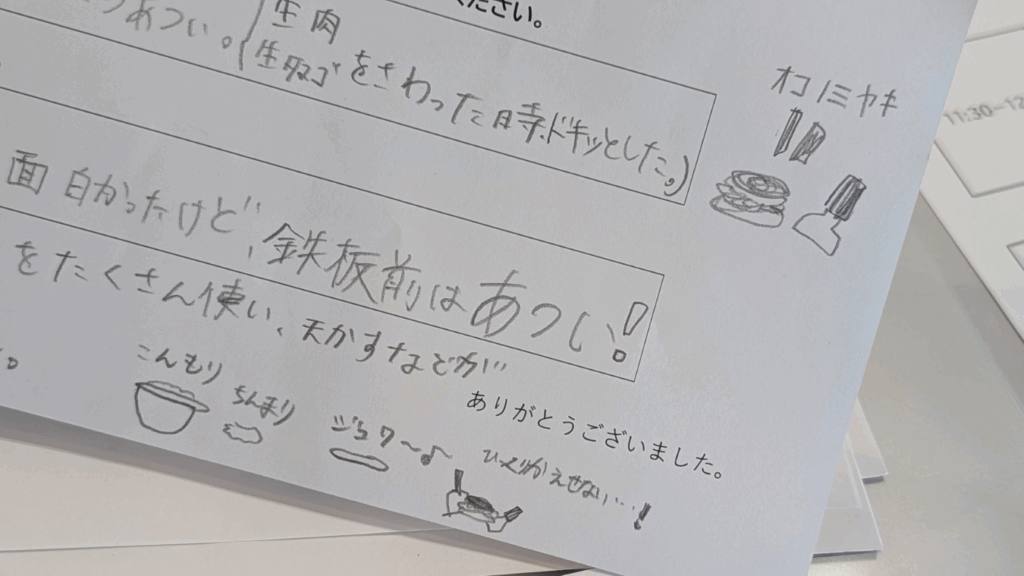 ください。
つあつい。(生肉
生タマゴをさわった時ドキッとした。)
オコノミヤキ
11:30~12
面白かったけど、鉄板前はあつい!
をたくさん使い、天かすなどが
こんもり
ちんまり
ジュワ〜♪
ひっくりかえせない…!
ありがとうございました。